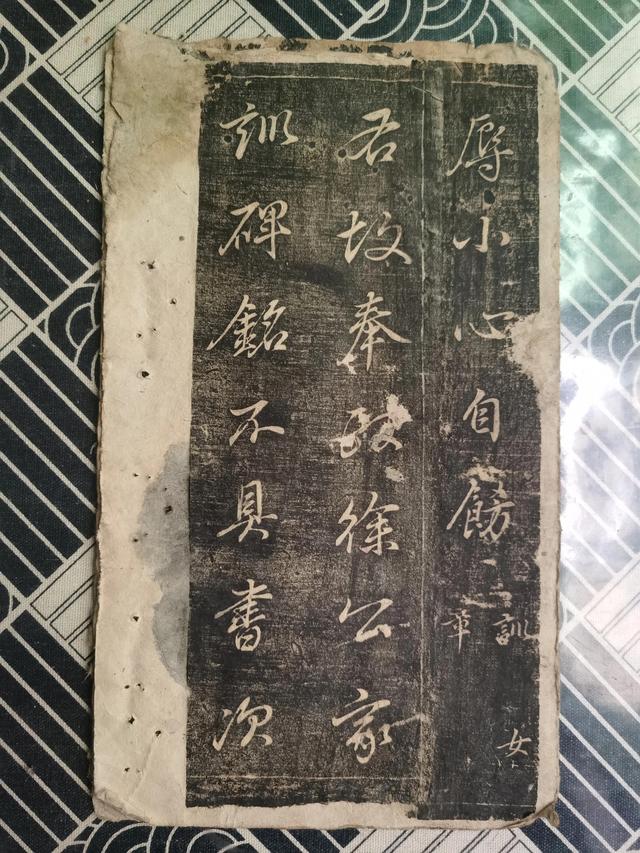 辱小心自飭
訓
章
女
右故奉政徐公家
訓碑銘不具書次